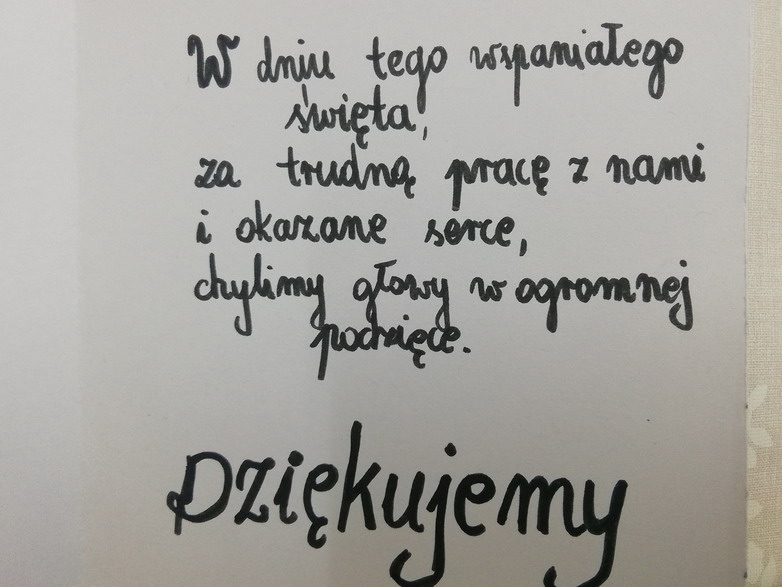 W dniu tego wspaniałego
święta,
za trudną pracę z nami
i okazane serce,
chylimy głowy w ogromnej
podzięce.
Dziękujemy